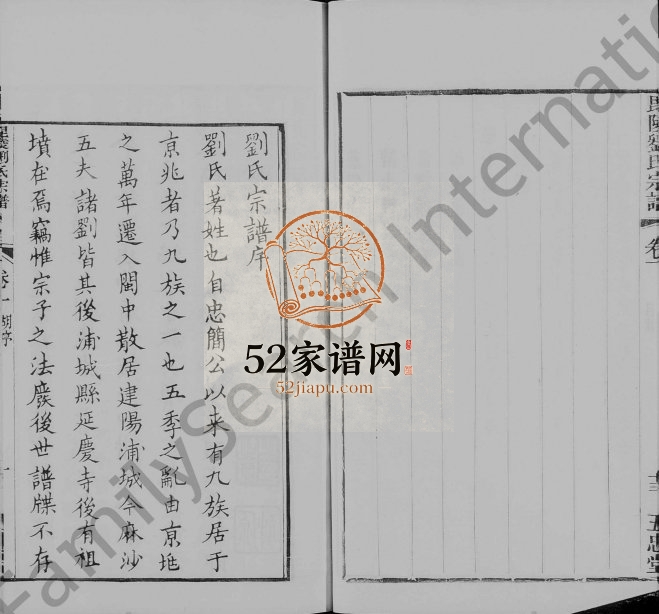 毘陵劉氏宗譜
卷一
五忠堂
劉氏宗譜序
劉氏著姓也自忠簡公以来有九族居于
京兆者乃九族之一也五季之亂由京地
之萬年遷入閩中散居建陽浦城今麻沙
五夫諸劉皆其後浦城縣延慶寺後有祖
墳在焉竊惟宗子之法廢後世譜牒不存
劉氏宗譜
卷一
胡序
一
52家谱网
52jiapu.com
FamilySearch International